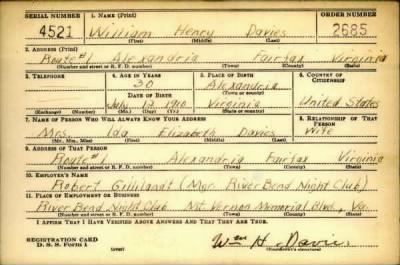 SERIAL NUMBER 1. NAME (Print) ORDER NUMBER
4521 William Henry Davies 2685
(First) (Middle) (Last)
2. ADDRESS (Print)
Route #1 Alexandria Fairfax Virginia
(Number and street or R. F. D. number) (Town) (County) (State)
3. TELEPHONE 4. AGE IN YEARS 5. PLACE OF BIRTH 6. COUNTRY OF CITIZENSHIP
30 Alexandria
DATE OF BIRTH (Town or county)
July 13 1910 Virginia United States
(Exchange) (Number) (Mo.) (Day) (Yr.) (State or country)
7. NAME OF PERSON WHO WILL ALWAYS KNOW YOUR ADDRESS 8. RELATIONSHIP OF THAT PERSON
Mrs. Ida Elizabeth Davies Wife
(Mr., Mrs., Miss) (First) (Middle) (Last)
9. ADDRESS OF THAT PERSON
Route #1 Alexandria Fairfax Virginia
(Number and street or R. F. D. number) (Town) (County) (State)
10. EMPLOYER'S NAME
Robert (Mgr. River Bend Night Club)
11. PLACE OF EMPLOYMENT OR BUSINESS
River Bend Night Club Mt. Vernon Memorial Blvd., Va.
(Number and street or R. F. D. number) (Town) (County) (State)
I AFFIRM THAT I HAVE VERIFIED ABOVE ANSWERS AND THAT THEY ARE TRUE.
REGISTRATION CARD
D. S. S. Form 1
(over)
Wm H. Davies
(Registrant's signature)